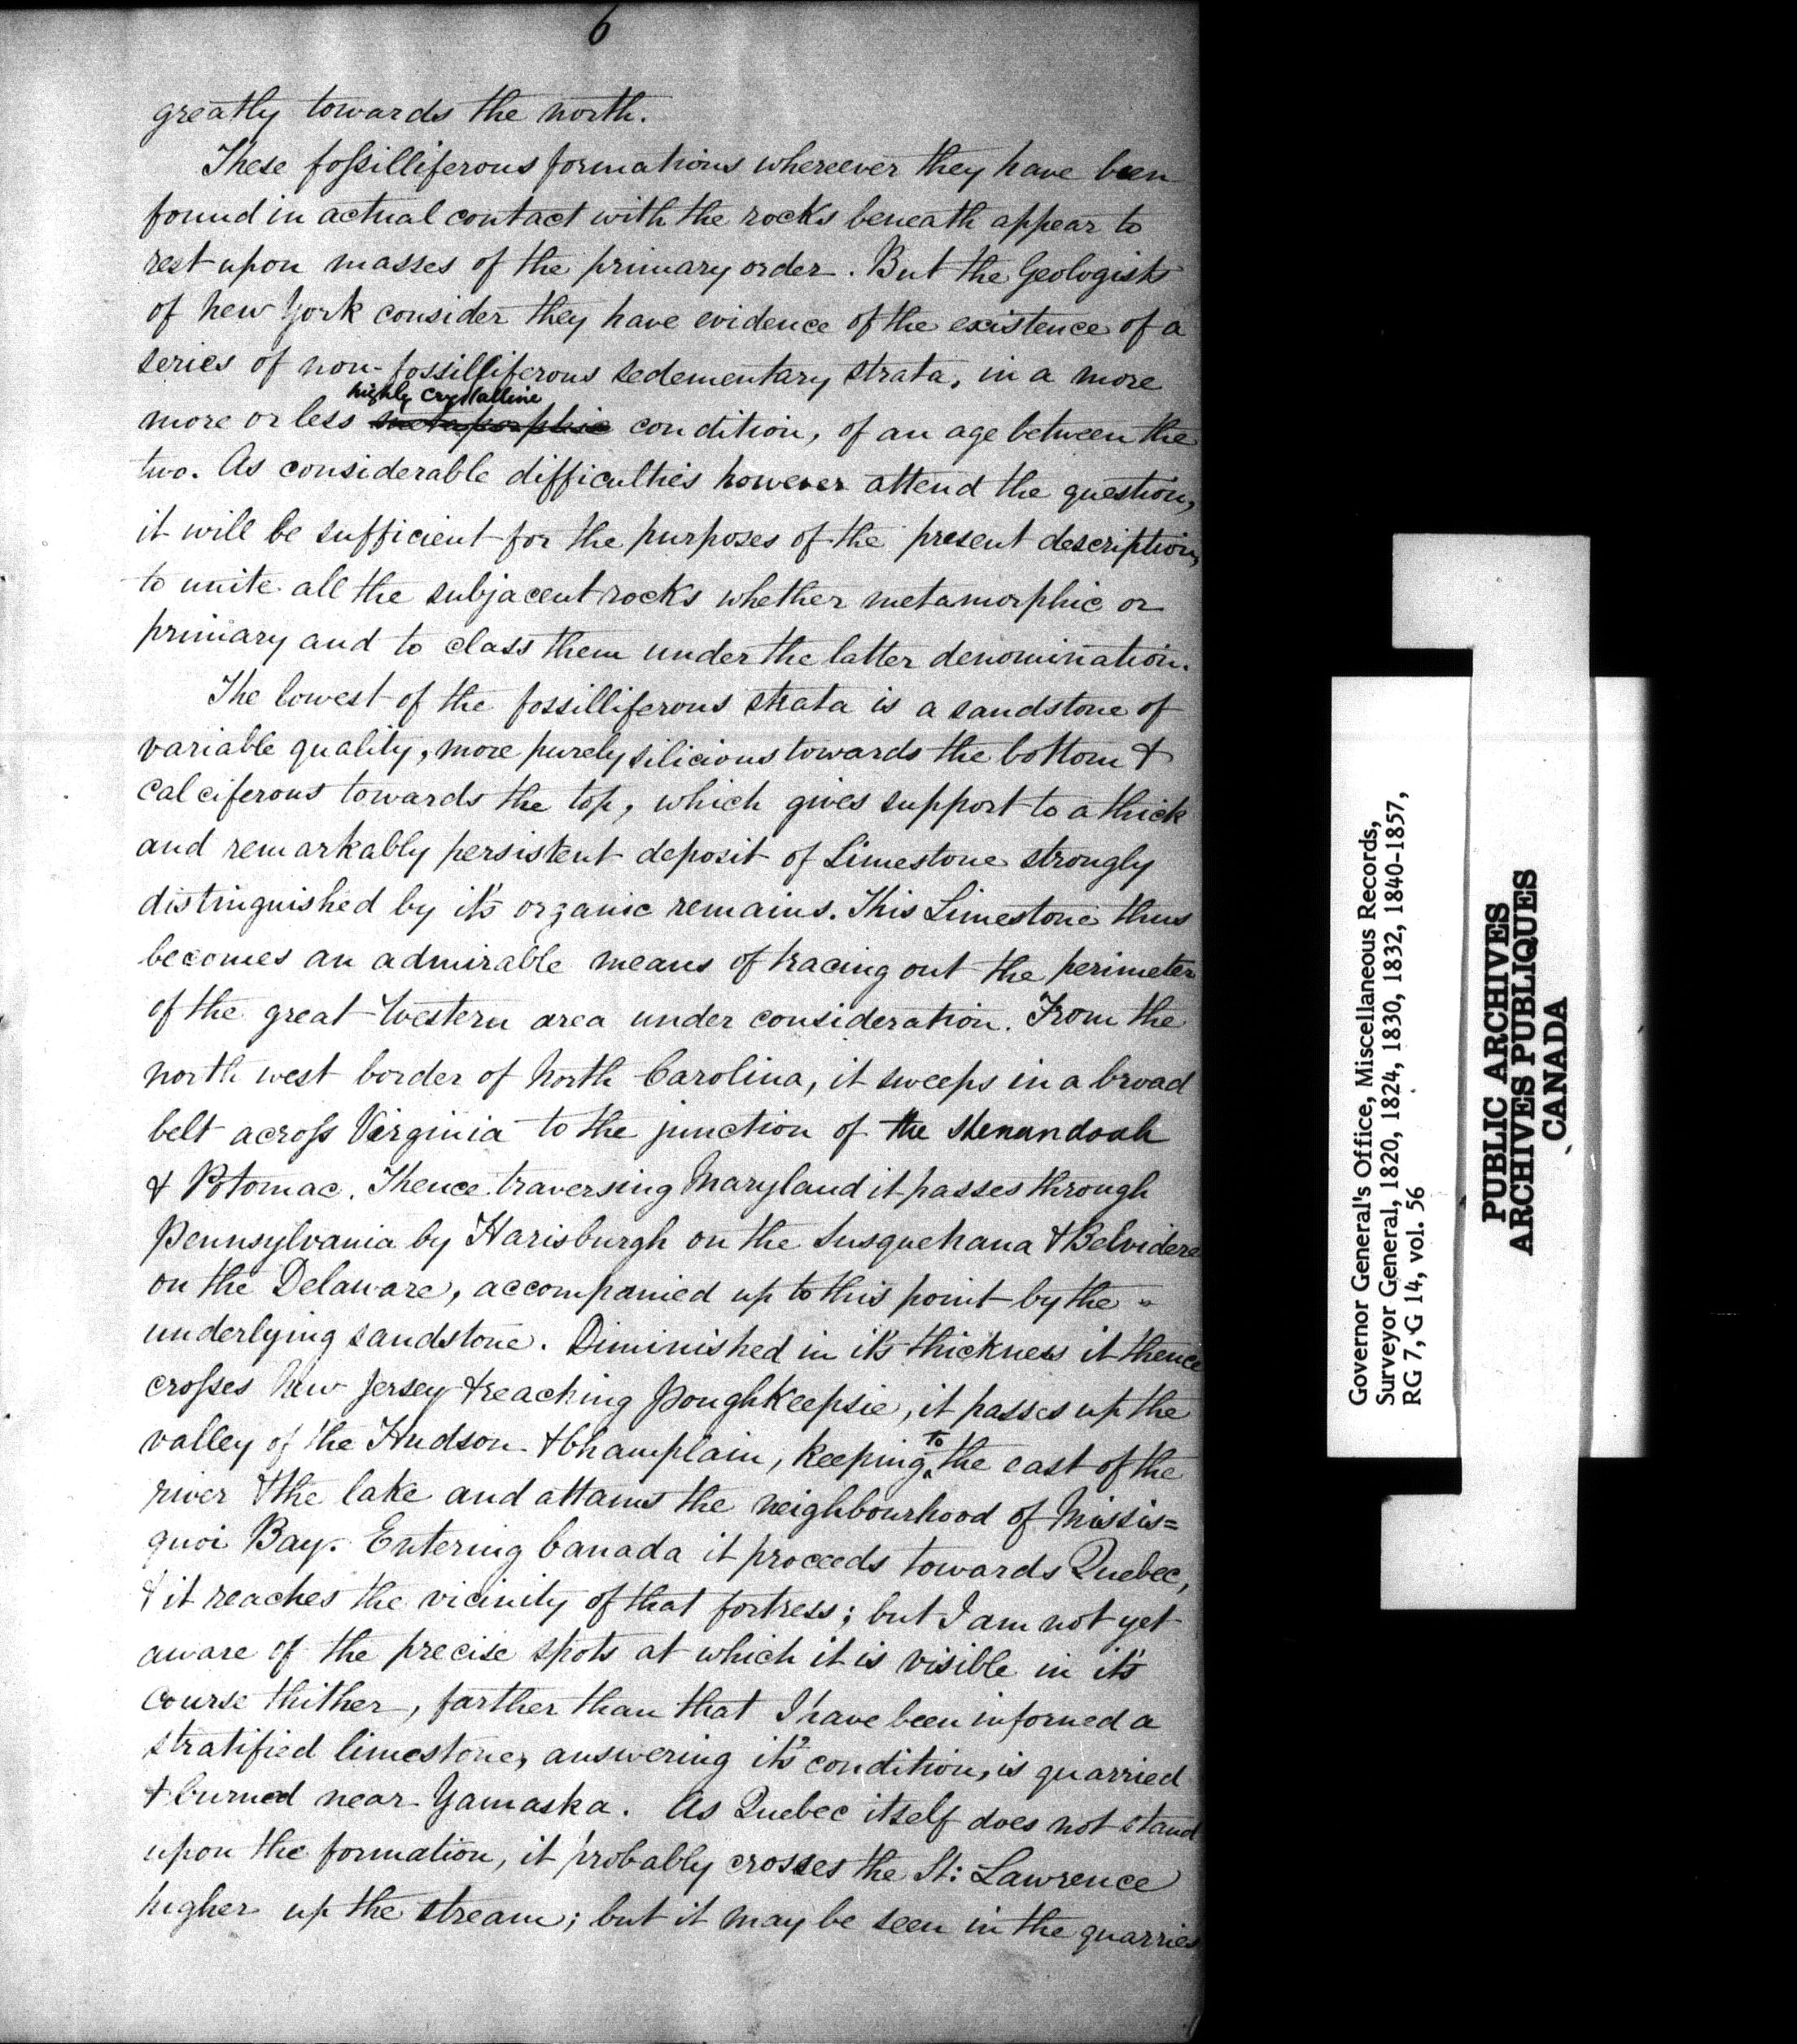 6
greatly towards the north.
These fossilliferous formations whereever they have been
found in actual contact with the rocks beneath appear to
rest upon masses of the primary order. But the Geologists
of New York consider they have evidence of the existence of a
series of non-fossilliferous sedementary strata, in a more
highly crystalline
more or less metamorphic condition, of an age between the
two. As considerable difficulties however attend the question,
it will be sufficient for the purposes of the present description,
to unite all the subjacent rocks whether metamorphic or
primary and to class them under the latter denomination.
The lowest of the fossilliferous strata is a sandstone of
variable quality, more purely silicious towards the bottom &
calciferous towards the top, which gives support to a thick
and remarkably persistent deposit of Limestone strongly
distinguished by it's organic remains. This Limestone thus
becomes an admirable means of tracing out the perimeter
of the great Western area under consideration. From the
north west border of North Carolina, it sweeps in a broad
belt across Virginia to the junction of the Shenandoah
& Potomac. Thence traversing Maryland it passes through
Pennsylvania by Harisburgh on the Susquehana & Belvidere
on the Delaware, accompanied up to this point by the
underlying sandstone. Diminished in it's thickness it thence
crosses New Jersey & reaching Poughkeepsie, it passes up the
valley of the Hudson & Champlain, keeping to the east of the
river & the lake and attains the neighbourhood of Missis=
quoi Bay. Entering Canada it proceeds towards Quebec,
& it reaches the vicinity of that fortress; but I am not yet
aware of the precise spots at which it is visible in it's
course thither, farther than that I have been informed a
stratified limestone, answering it's condition, is quarried
& burned near Yamaska. As Quebec itself does not stand
upon the formation, it probably crosses the St: Lawrence
higher up the stream; but it may be seen in the quarries
Governor General's Office, Miscellaneous Records,
Surveyor General, 1820, 1824, 1830, 1832, 1840-1857,
RG 7, G 14, vol. 56
PUBLIC ARCHIVES
ARCHIVES PUBLIQUES
CANADA